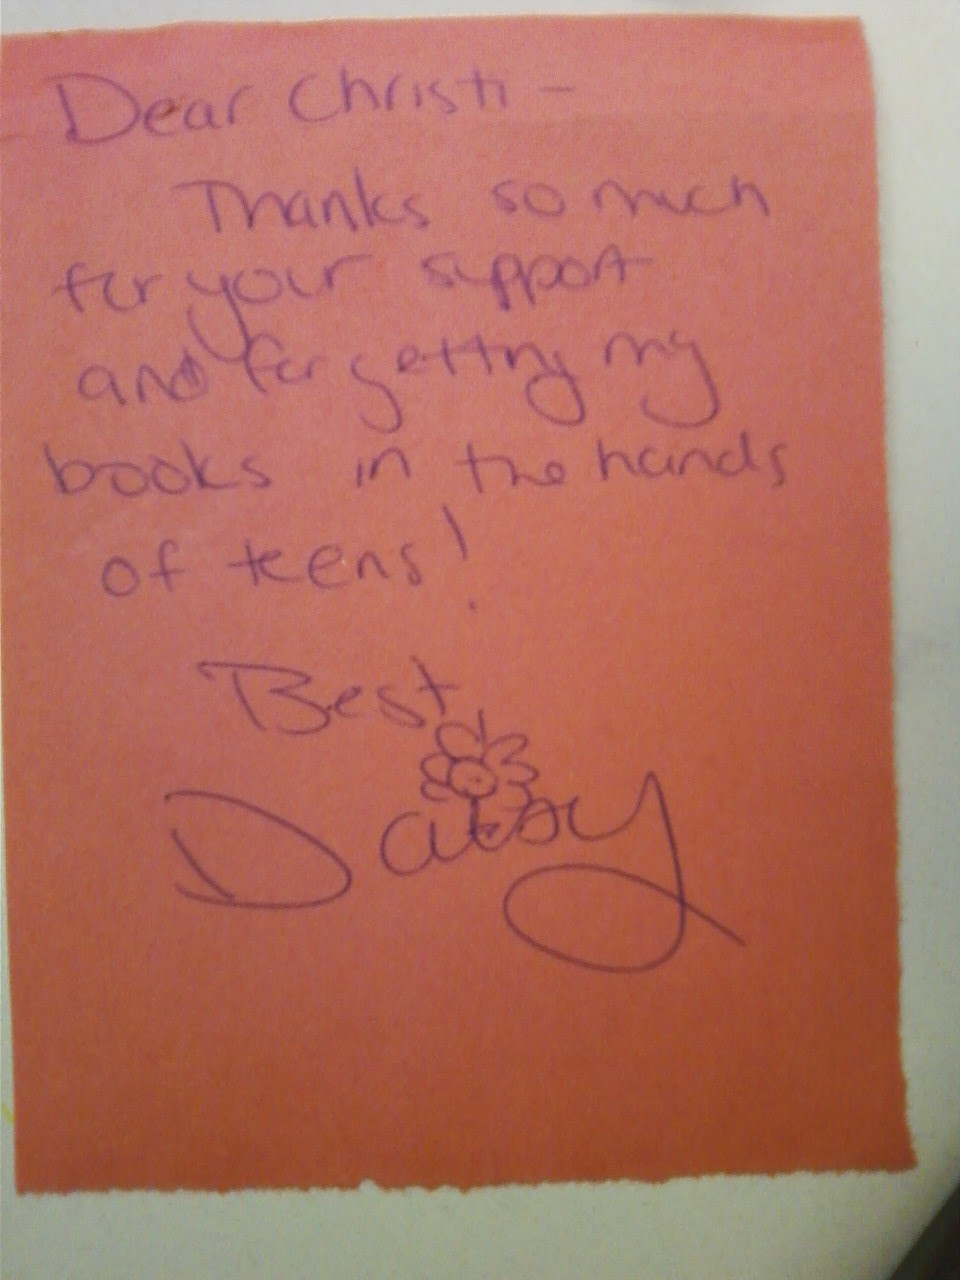 Dear Christi –
Thanks so much
for your support
and for getting my
books in the hands
of teens!
Best
Daisy